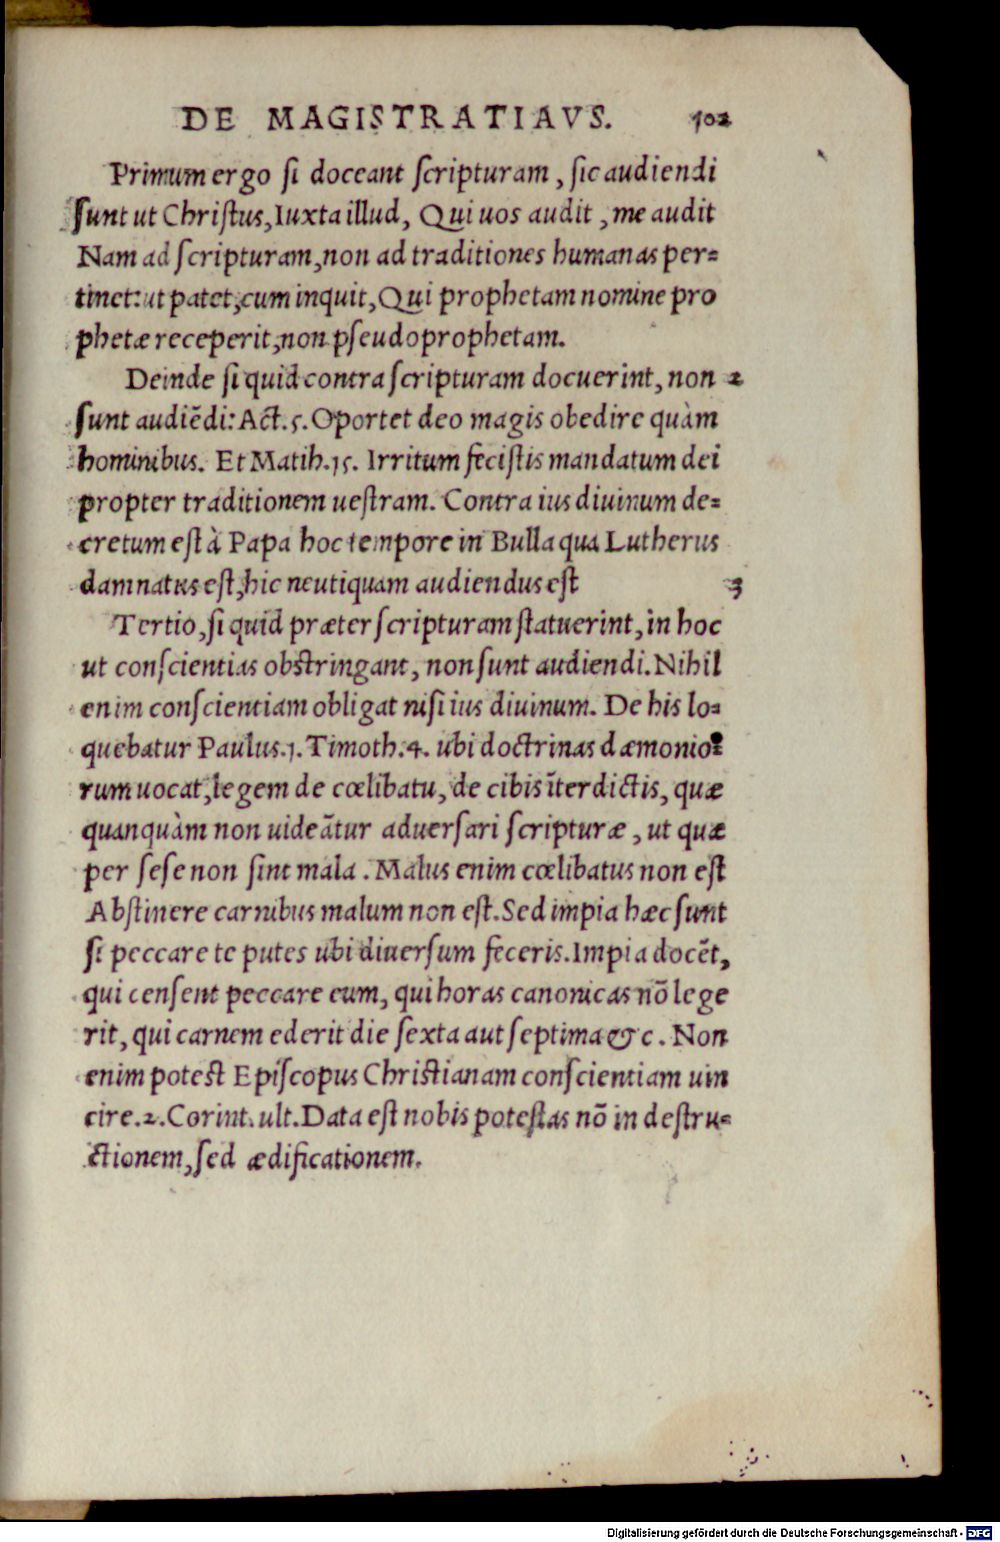 DE MAGISTRATIAVS. 102
Primum ergo si doceant scripturam, sic audiendi
sunt ut Christus, Iuxta illud, Qui uos audit, me audit
Nam ad scripturam, non ad traditiones humanas per=
tinet: ut patet, cum inquit, Qui prophetam nomine pro
phetæ receperit, non pseudoprophetam.
Deinde si quid contra scripturam docuerint, non 2
sunt audiẽdi: Act. 5. Oportet deo magis obedire quàm
hominibus. Et Matth. 15. Irritum fecistis mandatum dei
propter traditionem uestram. Contra ius diuinum de=
cretum est à Papa hoc tempore in Bulla qua Lutherus
damnatus est, hic neutiquam audiendus est 3
Tertio, si quid præter scripturam statuerint, in hoc
ut conscientias obstringant, non sunt audiendi. Nihil
enim conscientiam obligat nisi ius diuinum. De his lo=
quebatur Paulus. 1. Timoth. 4. ubi doctrinas dæmonio=
rum uocat, legem de cœlibatu, de cibis ĩterdictis, quæ
quanquàm non uideãtur aduersari scripturæ, ut quæ
per sese non sint mala. Malus enim cœlibatus non est
Abstinere carnibus malum non est. Sed impia hæc sunt
si peccare te putes ubi diuersum feceris. Impia docẽt,
qui censent peccare eum, qui horas canonicas nõ lege
rit, qui carnem ederit die sexta aut septima &c. Non
enim potest Episcopus Christianam conscientiam uin
cire. 2. Corint. ult. Data est nobis potestas nõ in destru=
ctionem, sed ædificationem.
Digitalisierung gefördert durch die Deutsche Forschungsgemeinschaft - DFG